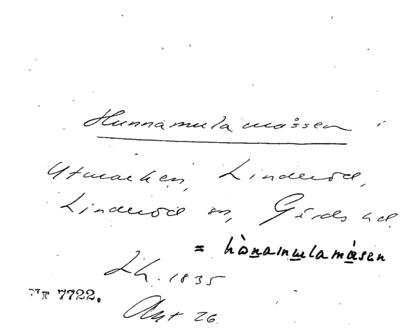 Hunnamulamåssen
Utmarken, Linderöd,
Linderöd sn, Gärds hd.
= hònamulamåsen
Lh. 1835
NT 7722.
Akt 26